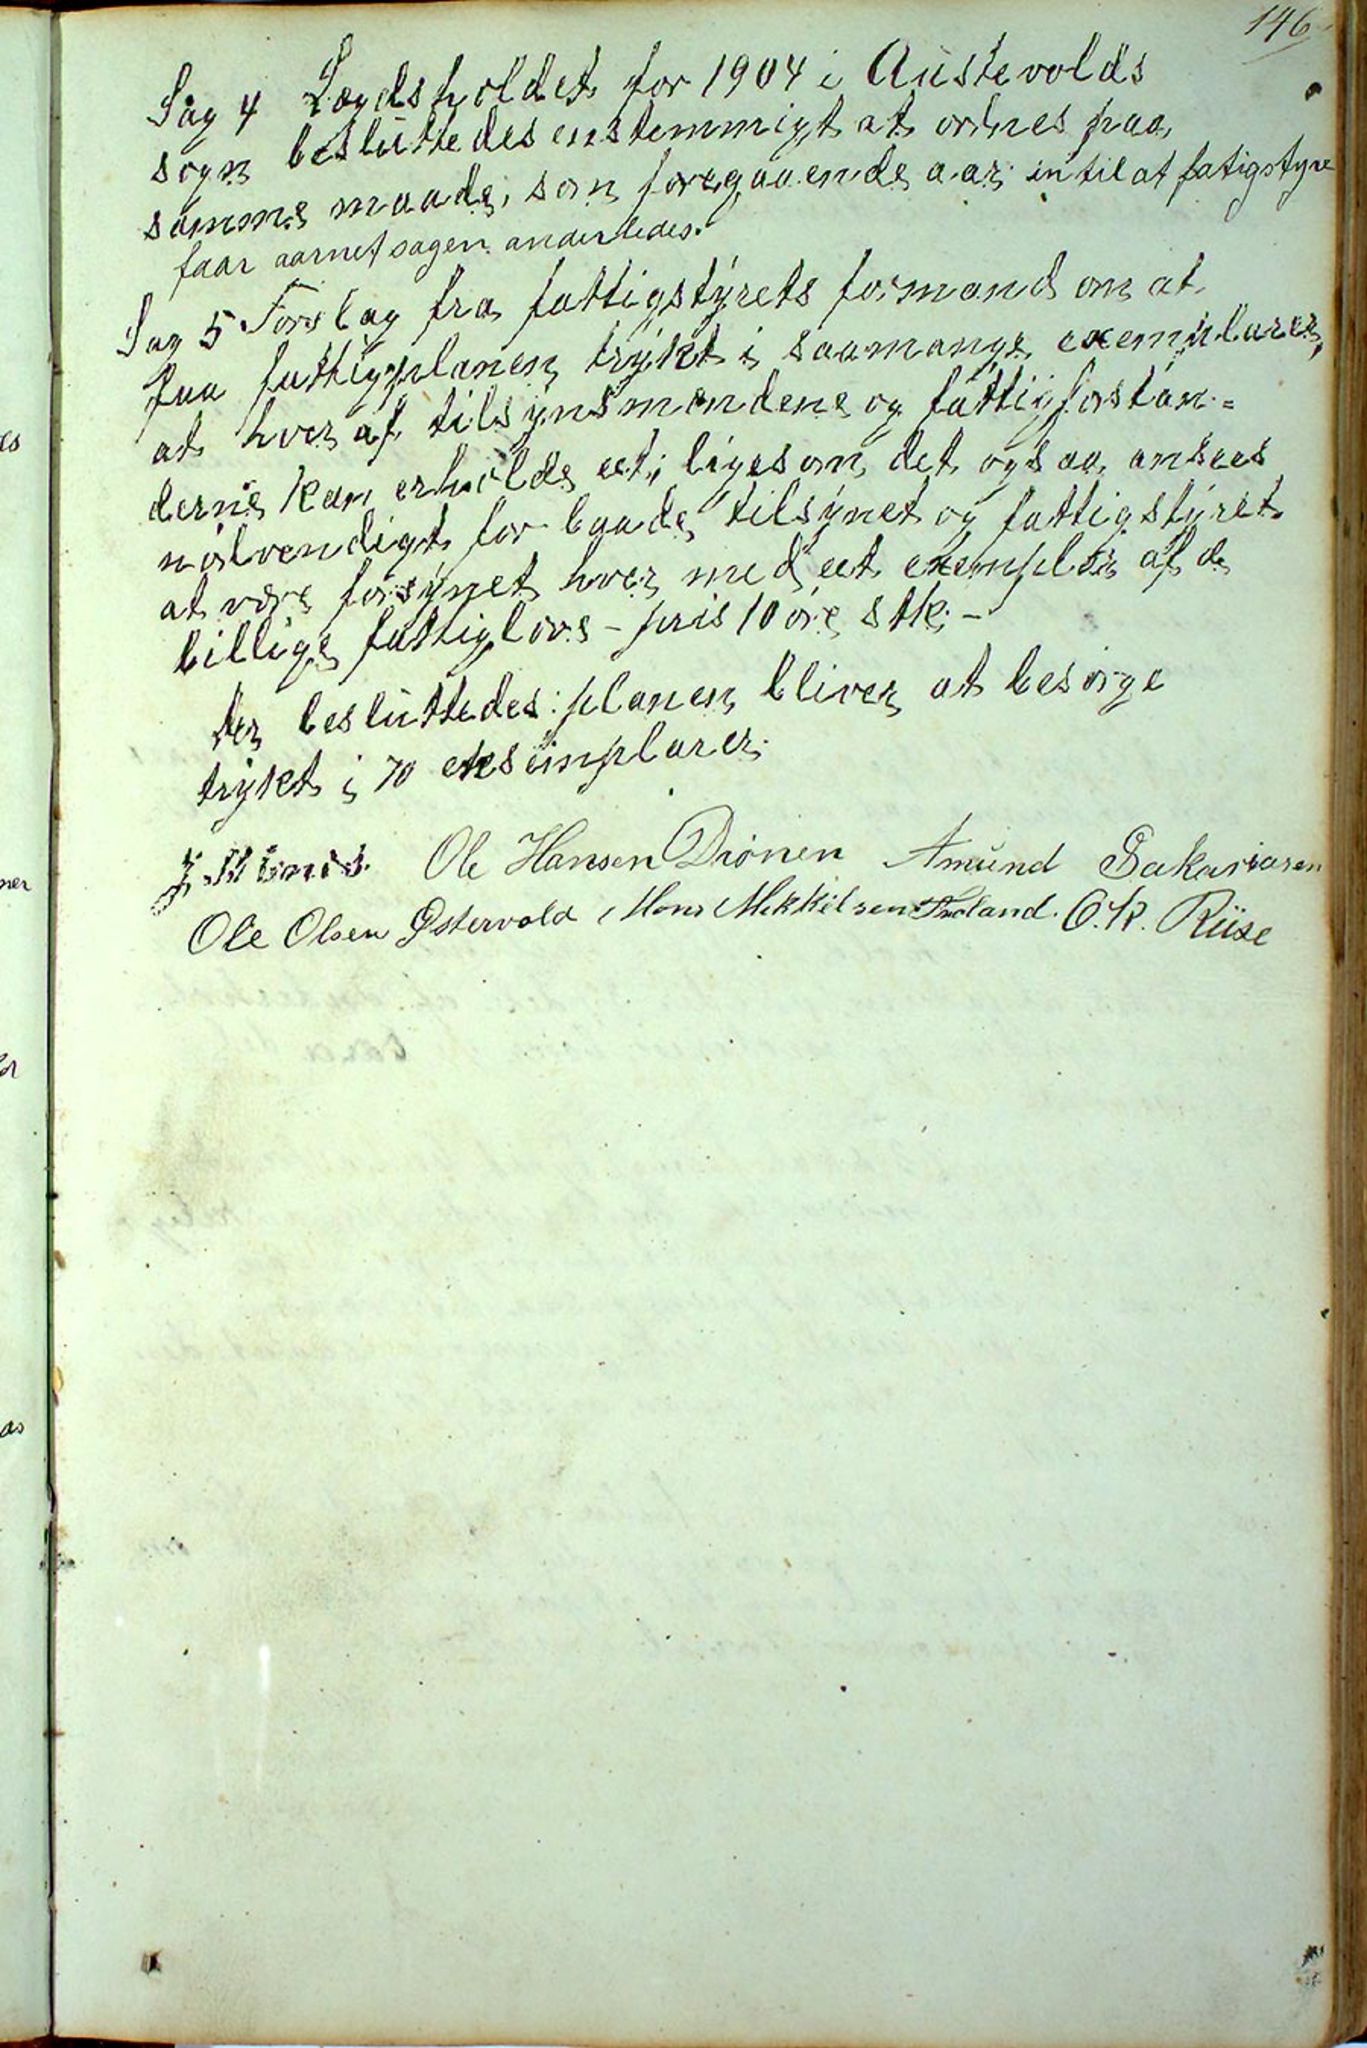 146
Sag 4 Lægdsholdet for 1904 i Austevolds
sogn besluttedes enstemmigt at ordnes paa
samme maade, som foregaaende aar intil at fatigstyre
faar aarnet sagen anderledes.
Sag 5 Forslag fra fattigstyrets formand om at
faa fattigplanen trykt i saamange exemplarer,
at hver af tilsynsmændene og fattigforstan=
derne kan erholde et, ligesom det ogsaa ansees
nødvendigt for baade tilsynet og fattigstyret
at være forsynet hver med eet exemplar af de
billige fattiglove – pris 10 øre stk. –
Der besluttedes: planen bliver at besørge
trykt i 70 eksemplarer.
Ole Hansen Drönen Amund Sakariasen
Ole Olsen Østervold Mons Mikkelsen Troland. O. K. Riise